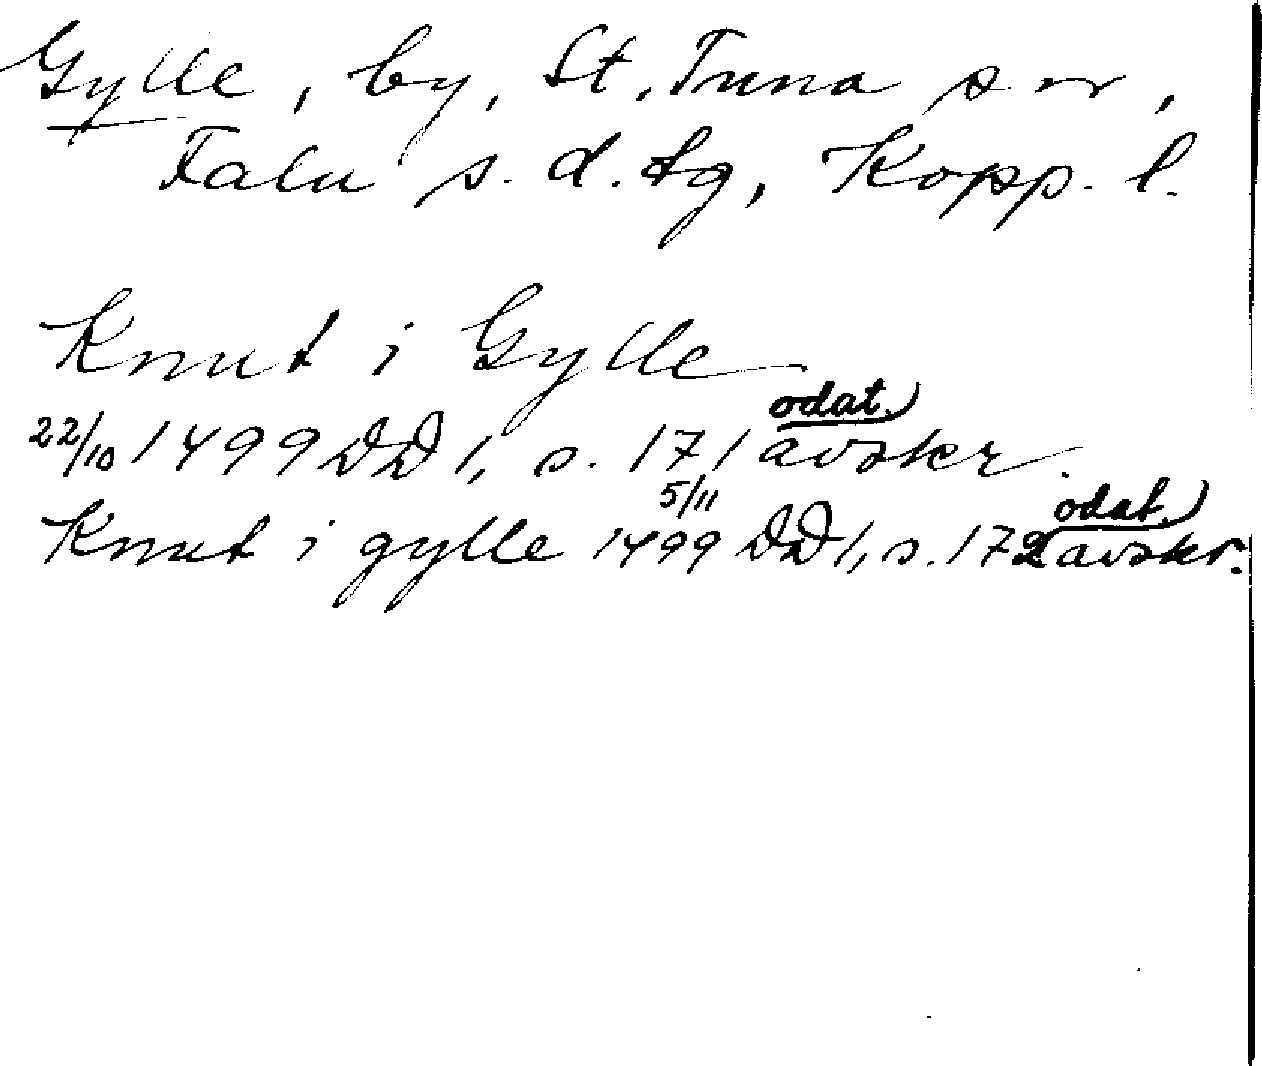 Gylle, by, St. Tuna sn,
Falu s. d. tg, Kopp. l.
Knut i Gylle
22/10 1499 DD 1, s. 171 odat. avskr.
Knut i gylle 5/11 1499 DD 1, s. 172 odat. avskr.